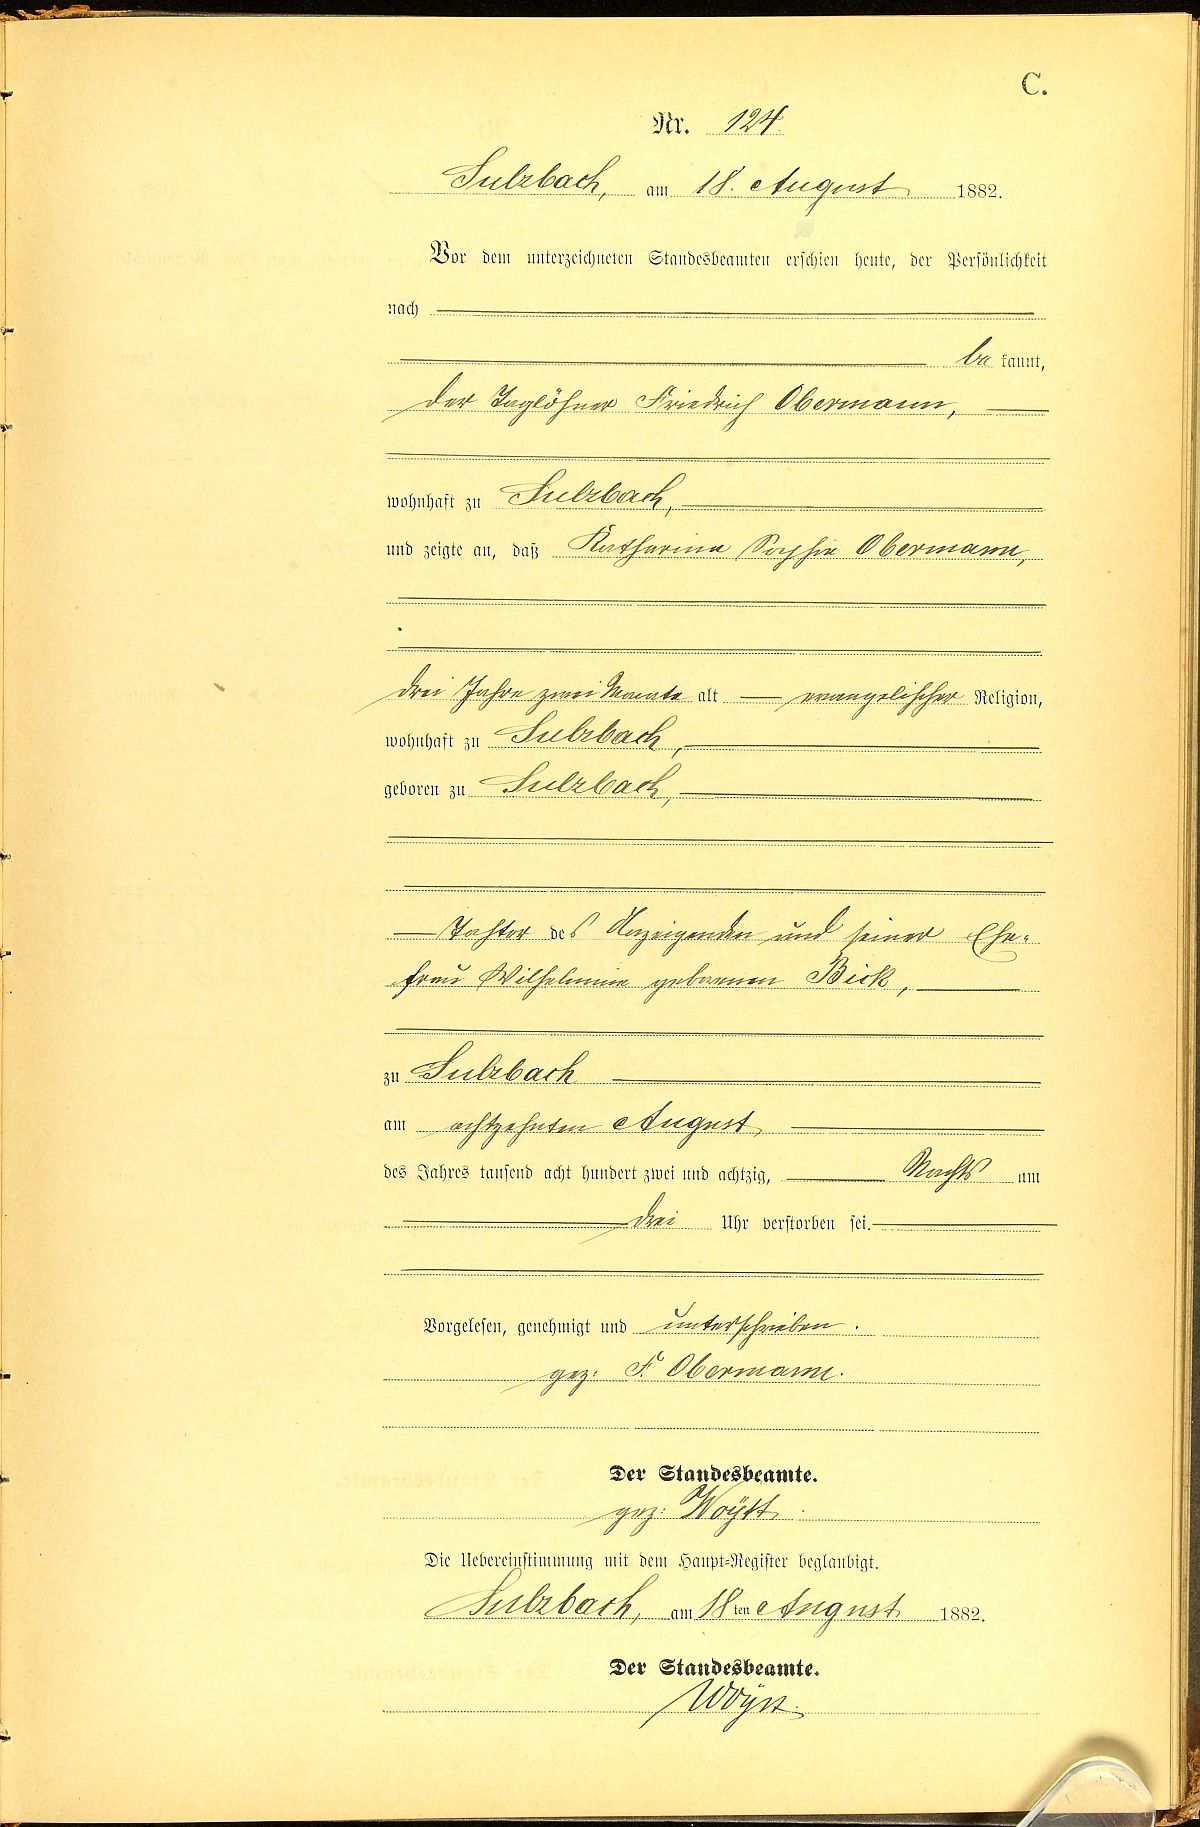 C.
Nr. 124.
Sulzbach, am 18. August 1882.
Vor dem unterzeichneten Standesbeamten erschien heute, der Persönlichkeit
nach
be kannt,
der Taglöhner Friedrich Obermann,
wohnhaft zu Sulzbach,
und zeigte an, daß Katharina Sophie Obermann,
drei Jahre zwei Monate alt evangelischer Religion,
wohnhaft zu Sulzbach,
geboren zu Sulzbach,
Tochter des Anzeigenden und seiner Ehe-
frau Wilhelmine geborenen Bick,
zu Sulzbach
am achtzehnten August
des Jahres tausend acht hundert zwei und achtzig, Nachts um
drei Uhr verstorben sei.
Vorgelesen, genehmigt und unterschrieben.
gez: F. Obermann.
Der Standesbeamte.
gez: Woytt.
Die Uebereinstimmung mit dem Haupt-Register beglaubigt.
Sulzbach, am 18ten August 1882.
Der Standesbeamte.
Woytt.